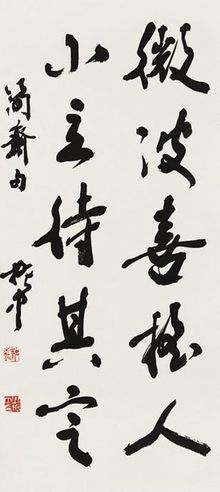 微波喜搖人
小立待其定
简斋句